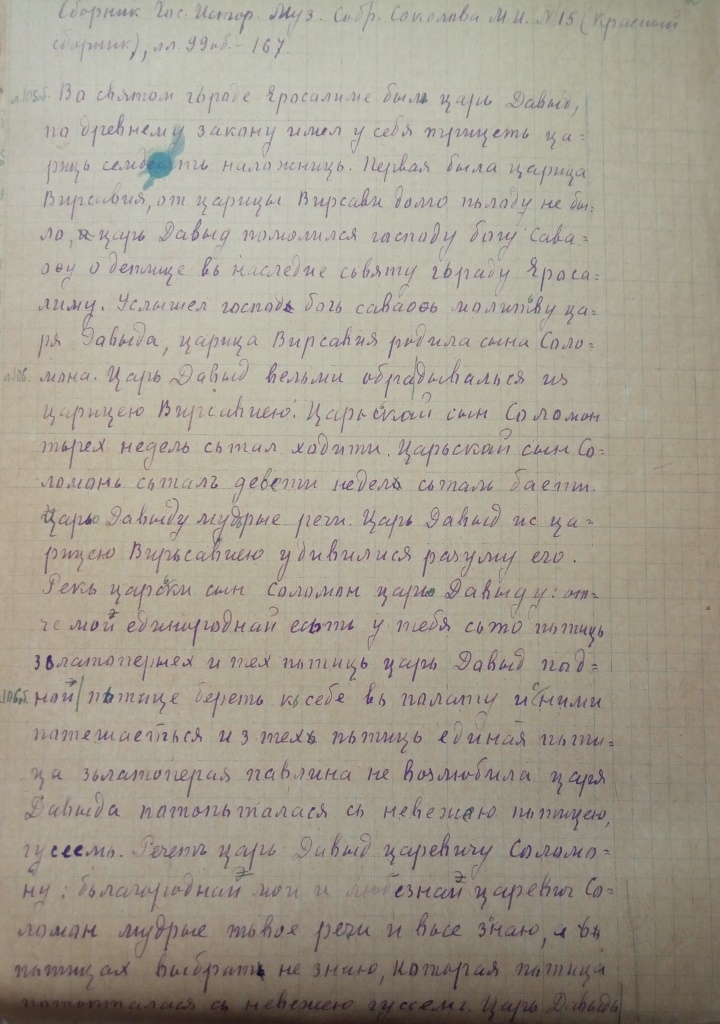 Сборник Гос. Истор. Муз. Собр. Соколова М.И. №15 (красный
сборник), лл. 99об. - 167.
л.105б. Во святом гьраде Еросалиме быль царь Давыд,
по древнему закону имел у себя трицеть ца-
риць семьдесить наложниць. Первая была царица
Вирсавия, от царицы Вирсави долго пьлоду не бы-
ло, и царь Давыд помолился господу богу Сава-
оѳу о детище вь наследие сьвяту гьраду Ероса-
лиму. Услышел господь богь саваоѳь молитву ца-
ря Давыда, царица Вирсавия родила сына Соло-
л.106. мона. Царь Давыд вельми обра|дывалься из
царицею Вирсавиею. Царьской сын Соломон
тьрех недель сьтал ходити. Царьской сын Со-
ломонь сьталь девети недель сьталь баети
Царю Давыду мудрые речи. Царь Давыд ис ца-
рицею Вирьсавиею удивилися разуму его.
Рекь царски сын Соломон царю Давыду: от-
че мой единородной есьть у тебя сьто пьтиць
зьлатоперыех и тех пьтиць царь Давыд под-
л.106б. ной | пьтице береть кь себе вь палату и с ними
потешаеться и з техь пьтиць единая пьти-
ца зьлатоперая павлина не возлюбила царя
Давыда потопьталася сь невежею пьтицею,
гуссемь. Речеть царь Давыд царевичу Соломо-
ну: бьлагородной мои и любезной царевич Со-
ломан мудрые тьвое речи и вьсе знаю, а вь
пьтицах выбрать не знаю, которая пьтица
потопталася сь невежею гуссемь. Царь Давыдь